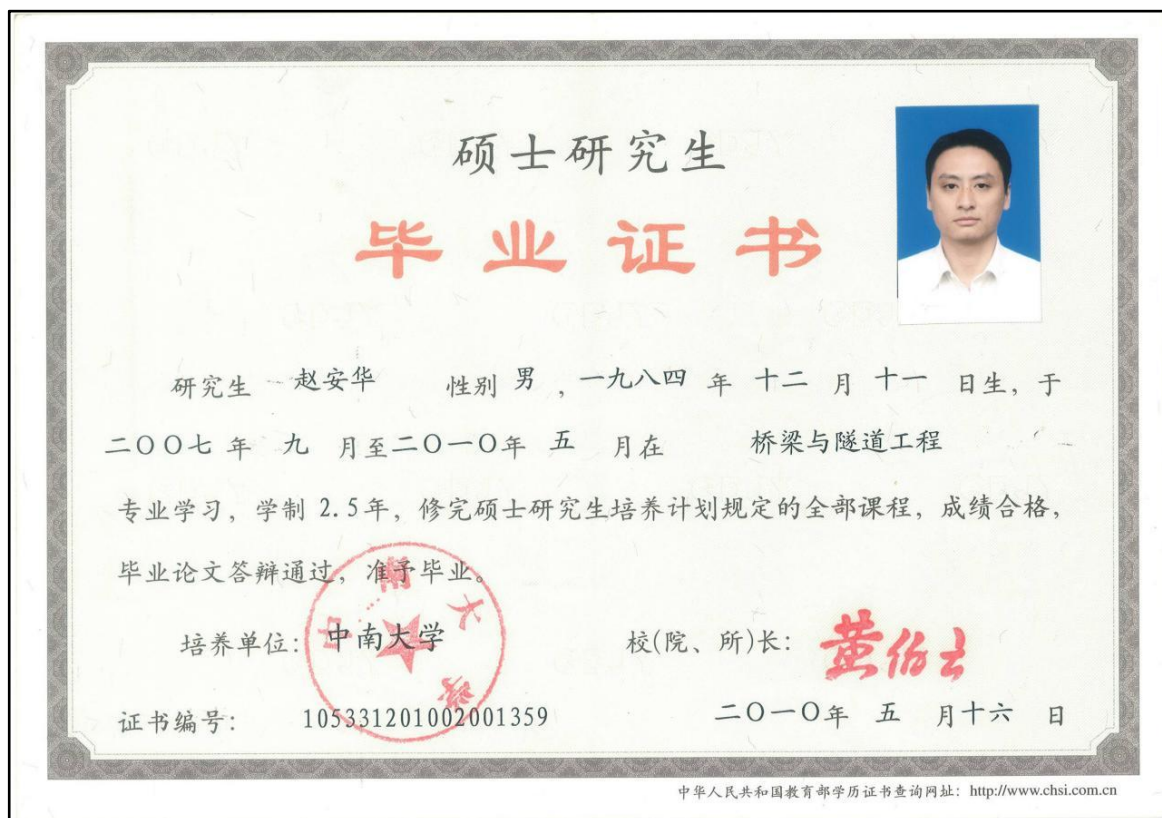 硕士研究生
毕业证书
研究生 赵安华 性别 男 , 一九八四 年 十二 月 十一 日生, 于
二〇〇七 年 九 月至二〇一〇年 五 月在 桥梁与隧道工程
专业学习, 学制 2.5年, 修完硕士研究生培养计划规定的全部课程, 成绩合格,
毕业论文答辩通过, 准予毕业。
培养单位: 中南大学 校(院、所)长: 黄伯云
证书编号: 105331201002001359 二〇一〇年 五 月十六 日
中华人民共和国教育部学历证书查询网址: http://www.chsi.com.cn